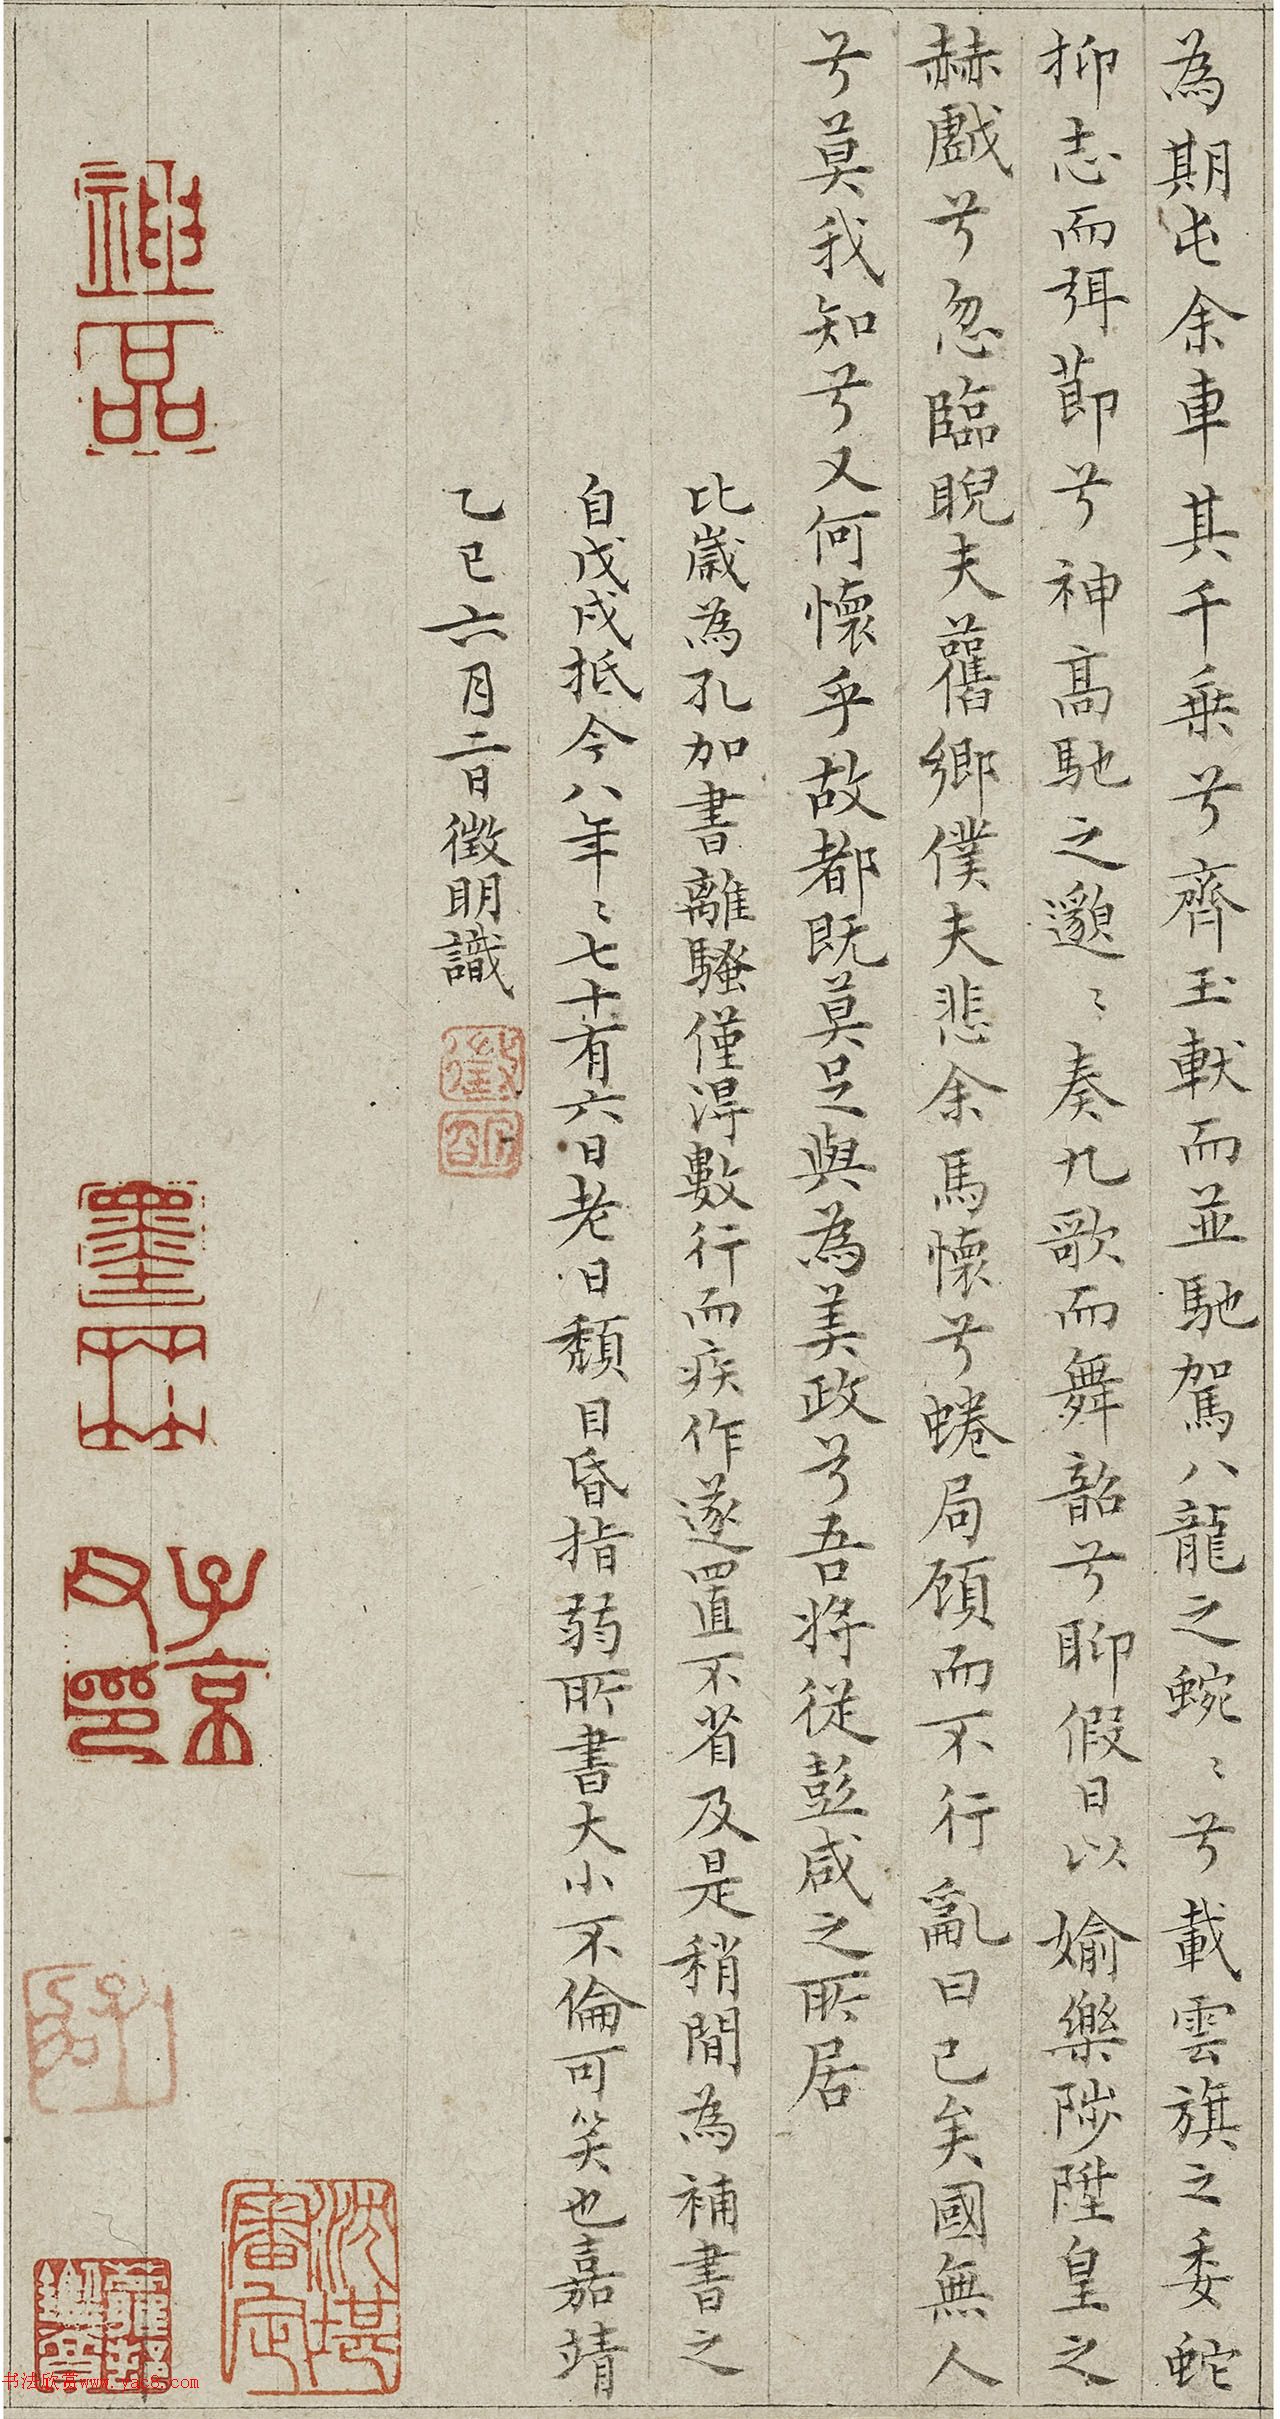 為期屯余車其千乗兮齊玉軑而並馳駕八龍之蜿〻兮載雲旗之委蛇
抑志而弭節兮神髙馳之邈〻奏九歌而舞韶兮聊假日以媮樂陟陞皇之
赫戯兮忽臨睨夫舊鄉僕夫悲余馬懷兮蜷局顧而不行亂曰已矣國無人
兮莫我知兮又何懷乎故都既莫足與為美政兮吾将従彭咸之所居
比歲為孔加書離騷僅淂數行而疾作遂置不省及是稍間為補書之
自戊戌抵今八年〻七十有六日老日頹目昏指弱所書大小不倫可笑也嘉靖
乙巳六月二日徵明識
徵明
神品
墨林
子京父印
沈堪審定
书法欣赏www.yac8.com